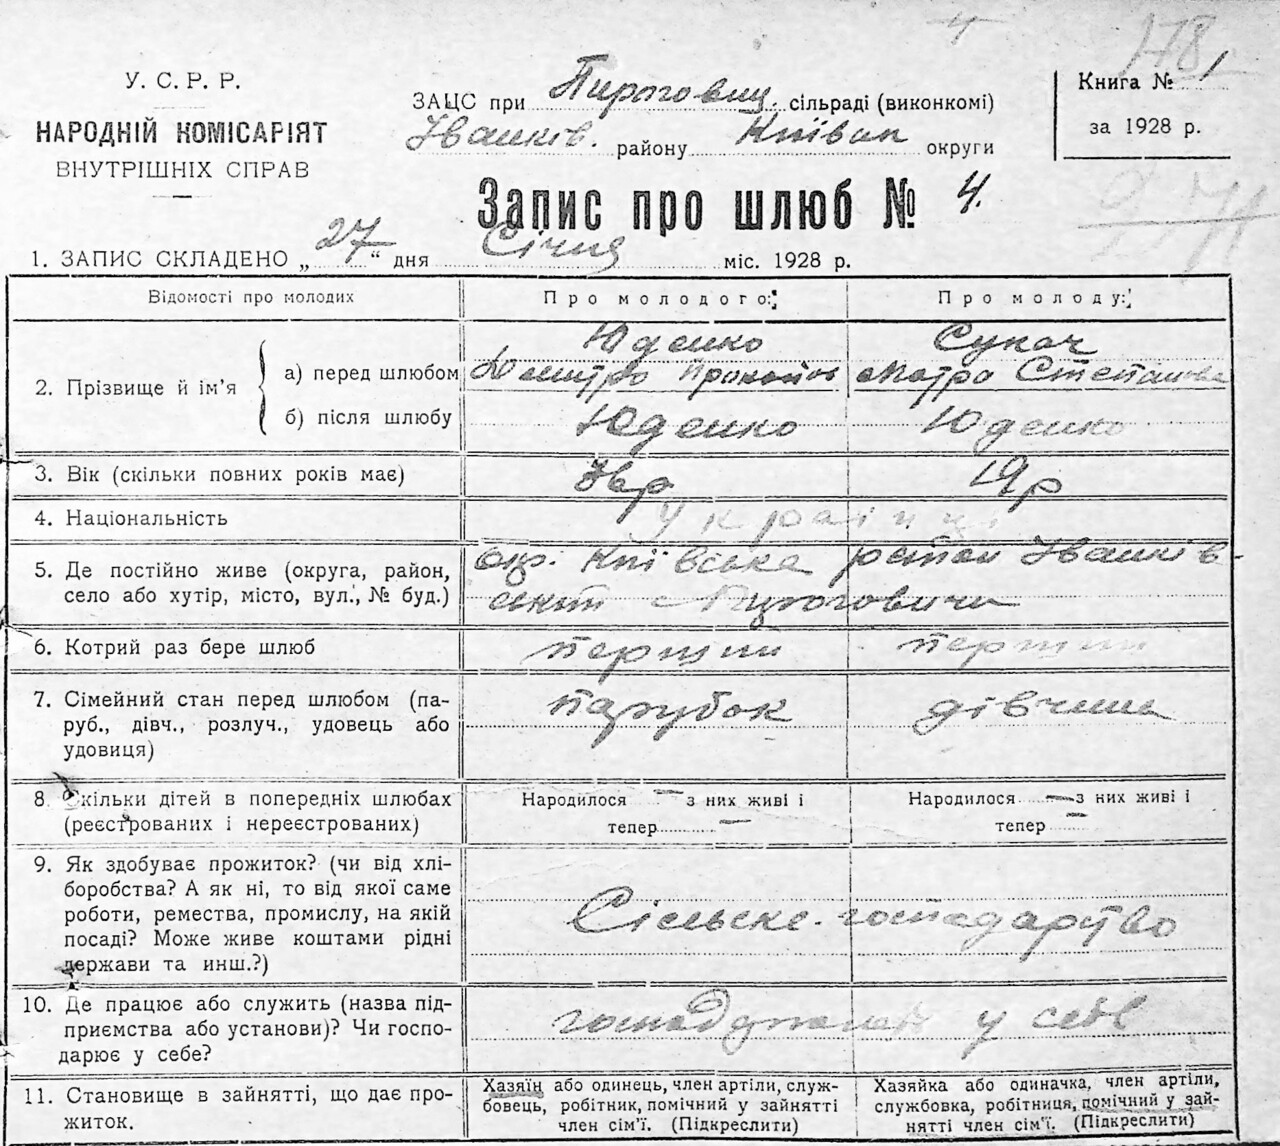 4
178
У. С. Р. Р.
НАРОДНІЙ КОМІСАРІЯТ
ВНУТРІШНІХ СПРАВ
ЗАЦС при Пироговиц. сільраді (виконкомі)
Іванків. району Київск округи
Книга № 1
за 1928 р.
Запис про шлюб № 4.
1. ЗАПИС СКЛАДЕНО „ 27 “ дня Січня міс. 1928 р.
Відомості про молодих
Про молодого:
Про молоду:
2. Прізвище й ім'я
а) перед шлюбом
Юденко
Дмитро Прокопов
Сукач
Мотра Степанова
б) після шлюбу
Юденко
Юденко
3. Вік (скільки повних років має)
19 р
4. Національність
Українці
5. Де постійно живе (округа, район,
село або хутір, місто, вул., № буд.)
окр. Київська район Іванків-
ський Пироговичи
6. Котрий раз бере шлюб
перший
перший
7. Сімейний стан перед шлюбом (па-
руб., дівч., розлуч., удовець або
удовиця)
парубок
дівчина
8. Скільки дітей в попередніх шлюбах
(реєстрованих і нереєстрованих)
Народилося — з них живі і
тепер —
Народилося — з них живі і
тепер —
9. Як здобуває прожиток? (чи від хлі-
боробства? А як ні, то від якої саме
роботи, ремества, промислу, на якій
посаді? Може живе коштами рідні
держави та инш.?)
Сільске-господарство
10. Де працює або служить (назва під-
приємства або установи)? Чи госпо-
дарює у себе?
у себе
11. Становище в зайнятті, що дає про-
житок.
Хазяїн або одинець, член артілі, служ-
бовець, робітник, помічний у зайнятті
член сім'ї. (Підкреслити)
Хазяйка або одиначка, член артіли,
службовка, робітниця, помічний у зай-
нятті член сім'ї. (Підкреслити)